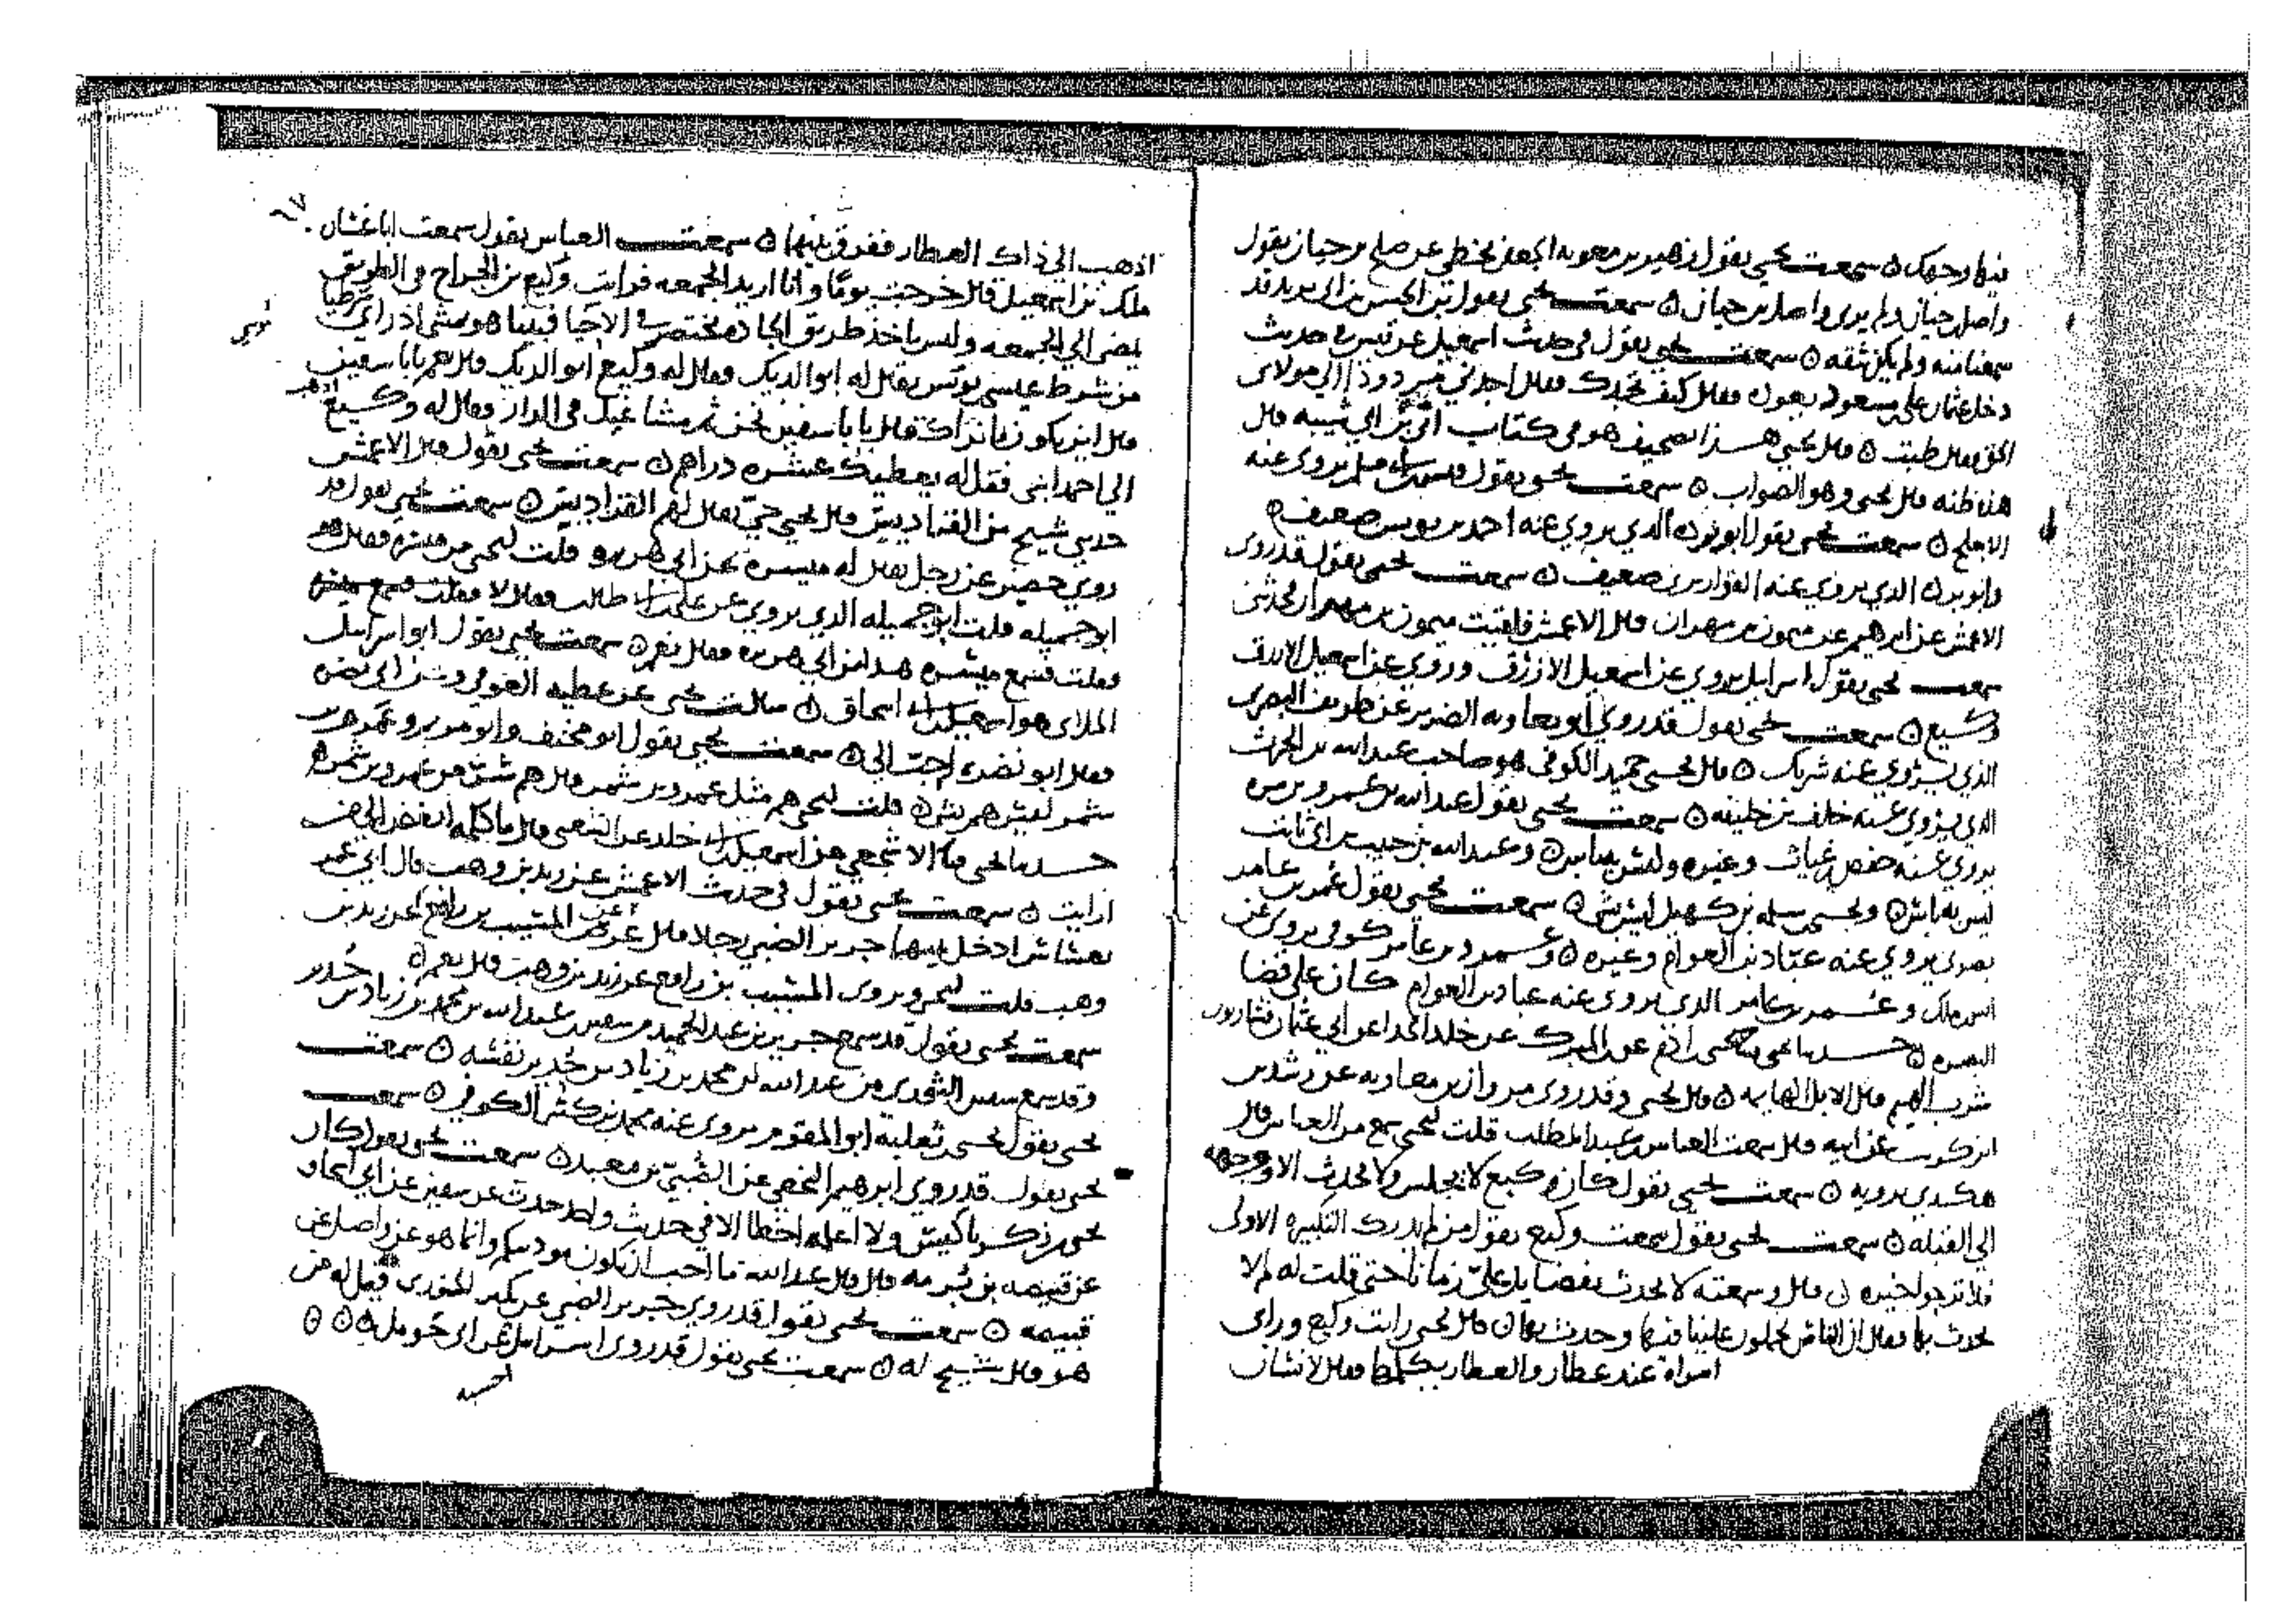 فيها وجهك ۞ سمعت يحيى يقول زهير بن معويه الجعفي يخطي عن صلح بن حيان يقول
واصل بن حيان ولم يرى واصل بن حيان ۞ سمعت يحيى يقول بن الحسن بن ابي يزيد قد
سمعنا منه ولم يكن ثقه ۞ سمعت يحيى يقول في حديث اسمعيل عن قيس في حديث
دخل عثمان على بن مسعود يعوده فقال كيف تجدك فقال اجدني مردود الى مولاى
الحق فقال طبت ۞ قال يحيى هذا الصحيف هو في كتاب ابن ابي شيبه قال
هذا ظنه قال يحيى وهو الصواب ۞ سمعت يحيى يقول يروى عنه
الاجلح ۞ سمعت يحيى يقول ابو بردة الذي يروي عنه احمد بن يونس ضعيف ۞
وابو بردة الذي يروي عنه القواريري ضعيف ۞ سمعت يحيى يقول قد روى
الاعمش عن ابرهيم عن ميمون بن مهران قال الاعمش فلقيت ميمون بن مهران فحدثني
سمعت يحيى يقول اسرايل يروي عن اسمعيل الازرق وروى عن اسمعيل الازرق
وكيع ۞ سمعت يحيى يقول قد روى ابو معاويه الضرير عن طريف البصرى
الذي يروي عنه شريك ۞ قال يحيى حميد الكوفي هو صاحب عبد الله بن الحرث
الذي يروي عنه خلف بن خليفه ۞ سمعت يحيى يقول عبد الله بن عمرو بن مره
يروي عنه حفص بن غياث وغيره وليس به باس ۞ وعبد الله بن حبيب بن ابي ثابت
ليس به باس ۞ ويحيى بن سلمه بن كهيل ليس بشى ۞ سمعت يحيى يقول عمر بن عامر
بصرى يروي عنه عباد بن العوام وغيره ۞ وعمرو بن عامر كوفي يروى عن
انس بن ملك وعمر بن عامر الذى يروى عنه عباد بن العوام كان على قضا
البصره ۞ حدثنا يحيى بن ادم عن ابن المبرك عن خلد الحذا عن ابي عثمان فشاربون
شرب الهيم قال الابل الهايمه ۞ قال يحيى وقد روى مروان بن معاويه عن رشدين
بن كريب عن ابيه قال سمعت العباس بن عبد المطلب قلت ليحيى سمع من العباس قال
هكذى يرويه ۞ سمعت يحيى يقول كان وكيع لا يجلس ولا يحدث الا ووجهه
الى القبله ۞ سمعت يحيى يقول سمعت وكيع يقول من لم يدرك التكبيره الاولى
فلا ترجو لخيره ۞ قال وسمعته لا يحدث بفضايل على زمانا حتى قلت له لم لا
تحدث بها فقال ان الناس يحملون علينا فيها وحدث بها ۞ قال يحيى رايت وكيع وراى
امراة عند عطار والعطار يكلمها فقال لانسان
اذهب الى ذاك العطار ففرق بينهما ۞ سمعت العباس يقول سمعت ابا غسان
ملك بن اسمعيل قال خرجت يوما وانا اريد الجمعه فرايت وكيع بن الجراح في الطريق
يمضى الى الجمعه وليس ياخذ طريق الجاده يختصر في الاحيا فبينا هو يمشى اذ راى شرطيا
من شرط عيسى بن موسى يقال له ابو الديك فقال له وكيع ابو الديك قال نعم يابا سفين
قال اين يكون زمانراك قال يابا سفين نحن ثم مشاغيل في الدار فقال له وكيع اذهب
الى احمد ابنى فقل له يعطيك عشره دراهم ۞ سمعت يحيى يقول قال الاعمش
حدثني شيخ من القداديين قال يحيى حي يقال لهم القداديين ۞ سمعت يحيى يقول قد
روى حصين عن رجل يقال له ميسرة عن ابي هريره قلت ليحيى من ميسره فقال هو
ابو جميله قلت ابو جميله الذي يروي عن علي بن ابي طالب فقال لا فقلت
فقلت فسمع ميسره هذا من ابي هريره فقال نعم ۞ سمعت يحيى يقول ابو اسرايل
الملاى هو اسمعيل بن ابي اسحاق ۞ سالت يحيى عن عطيه العوفي وعن ابي نضره
فقال ابو نضره احب الى ۞ سمعت يحيى يقول ابو مخنف وابو مريم وعمرو بن
شمر ليس هم بشى ۞ قلت ليحيى هم مثل عمرو بن شمر قال هم شر من عمرو بن شمر ۞
حدثنا يحيى الاشجعي عن اسمعيل بن ابي خلد عن الشعبى قال ما كلمه ابغض الى من
ارايت ۞ سمعت يحيى يقول في حديث الاعمش عن زيد بن وهب قال ابي عمر
بعساس ادخل بينهما جرير الضبي رجلا قال عن المسيب بن رافع عن زيد بن
وهب قلت ليحيى ويروى المسيب بن رافع عن زيد بن وهب قال نعم ۞
سمعت يحيى يقول قد سمع جرير بن عبد الحميد من سفين بن عبد الله بن محمد بن زياد بن حدير
وقد سمع سفين الثوري من عبد الله بن محمد بن زياد بن حدير نفسه ۞ سمعت
يحيى يقول يحيى بن ثعلبه ابو المقوم يروى عنه محمد بن كثير الكوفي ۞ سمعت
يحيى يقول قد روى ابرهيم النخعي عن الضبي بن معبد ۞ سمعت يحيى يقول كان
يحيى بن زكريا كيس ولا اعلمه اخطا الا في حديث واحد حدث عن سفين عن ابي اسحاق
عن قبيصه بن برمه قال قال عبد الله ما احب ان يكون موذنيكم وانما هو عن واصل عن
قبيصه ۞ سمعت يحيى يقول قد روى جرير الضبي عن الخنورى فقيل له من
هو قال شيخ له ۞ سمعت يحيى يقول قد روى اسرايل عن ابي حومل ۞ ۞ ۞